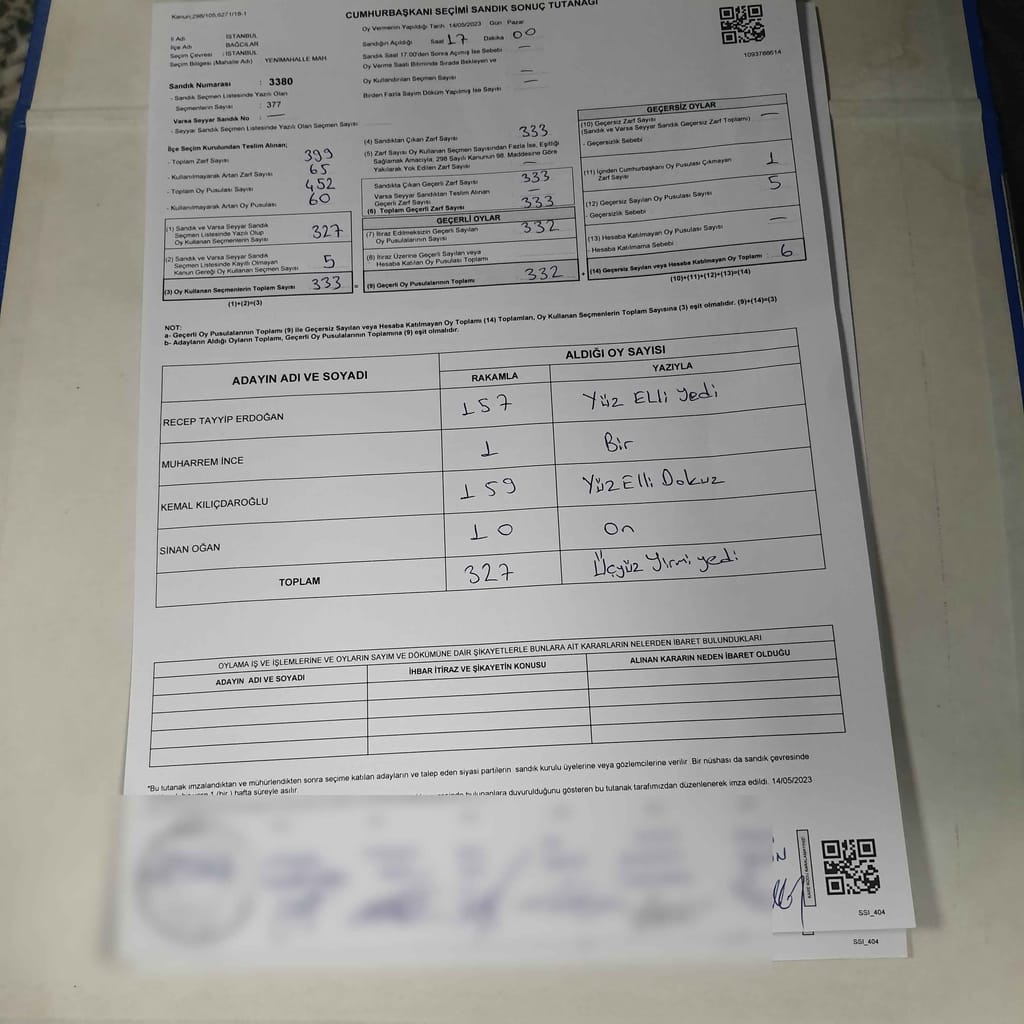 Kanun;298/105,6271/18-1
CUMHURBAŞKANI SEÇİMİ SANDIK SONUÇ TUTANAĞI
İl Adı : İSTANBUL
İlçe Adı : BAĞCILAR
Seçim Çevresi : İSTANBUL
Seçim Bölgesi (Mahalle Adı) YENİMAHALLE MAH.
Oy Vermenin Yapıldığı Tarih 14/05/2023 Gün Pazar
Sandığın Açıldığı Saat 17 Dakika 00
Sandık Saat 17.00'den Sonra Açılmış İse Sebebi —
Oy Verme Saati Bitiminde Sırada Bekleyen ve
Oy Kullandırılan Seçmen Sayısı —
Birden Fazla Sayım Döküm Yapılmış İse Sayısı —
1093788614
Sandık Numarası : 3380
- Sandık Seçmen Listesinde Yazılı Olan
Seçmenlerin Sayısı : 377
Varsa Seyyar Sandık No : —
- Seyyar Sandık Seçmen Listesinde Yazılı Olan Seçmen Sayısı
İlçe Seçim Kurulundan Teslim Alınan;
- Toplam Zarf Sayısı 399
- Kullanılmayarak Artan Zarf Sayısı 65
- Toplam Oy Pusulası Sayısı 452
- Kullanılmayarak Artan Oy Pusulası 60
(1) Sandık ve Varsa Seyyar Sandık
Seçmen Listesinde Yazılı Olup
Oy Kullanan Seçmenlerin Sayısı 327
(2) Sandık ve Varsa Seyyar Sandık
Seçmen Listesinde Kayıtlı Olmayan
Kanun Gereği Oy Kullanan Seçmen Sayısı 5
(3) Oy Kullanan Seçmenlerin Toplam Sayısı 333 =
(1)+(2)=(3)
(4) Sandıktan Çıkan Zarf Sayısı 333
(5) Zarf Sayısı Oy Kullanan Seçmen Sayısından Fazla İse, Eşitliği
Sağlamak Amacıyla, 298 Sayılı Kanunun 98. Maddesine Göre
Yakılarak Yok Edilen Zarf Sayısı —
Sandıkta Çıkan Geçerli Zarf Sayısı 333
Varsa Seyyar Sandıktan Teslim Alınan
Geçerli Zarf Sayısı —
(6) Toplam Geçerli Zarf Sayısı 333
GEÇERLİ OYLAR
(7) İtiraz Edilmeksizin Geçerli Sayılan
Oy Pusulalarının Sayısı 332
(8) İtiraz Üzerine Geçerli Sayılan veya
Hesaba Katılan Oy Pusulası Toplamı
(9) Geçerli Oy Pusulalarının Toplamı 332 +
GEÇERSİZ OYLAR
(10) Geçersiz Zarf Sayısı
(Sandık ve Varsa Seyyar Sandık Geçersiz Zarf Toplamı) —
- Geçersizlik Sebebi
(11) İçinden Cumhurbaşkanı Oy Pusulası Çıkmayan
Zarf Sayısı 1
(12) Geçersiz Sayılan Oy Pusulası Sayısı 5
- Geçersizlik Sebebi
(13) Hesaba Katılmayan Oy Pusulası Sayısı —
- Hesaba Katılmama Sebebi
(14) Geçersiz Sayılan veya Hesaba Katılmayan Oy Toplamı : 6
(10)+(11)+(12)+(13)=(14)
NOT:
a- Geçerli Oy Pusulalarının Toplamı (9) ile Geçersiz Sayılan veya Hesaba Katılmayan Oy Toplamı (14) Toplamları, Oy Kullanan Seçmenlerin Toplam Sayısına (3) eşit olmalıdır. (9)+(14)=(3)
b- Adayların Aldığı Oyların Toplamı, Geçerli Oy Pusulalarının Toplamına (9) eşit olmalıdır.
ADAYIN ADI VE SOYADI
ALDIĞI OY SAYISI
RAKAMLA YAZIYLA
RECEP TAYYİP ERDOĞAN 157 Yüz Elli Yedi
MUHARREM İNCE 1 Bir
KEMAL KILIÇDAROĞLU 159 Yüz Elli Dokuz
SİNAN OĞAN 10 On
TOPLAM 327 Üçyüz Yirmi yedi
OYLAMA İŞ VE İŞLEMLERİNE VE OYLARIN SAYIM VE DÖKÜMÜNE DAİR ŞİKAYETLERLE BUNLARA AİT KARARLARIN NELERDEN İBARET BULUNDUKLARI
ADAYIN ADI VE SOYADI İHBAR İTİRAZ VE ŞİKAYETİN KONUSU ALINAN KARARIN NEDEN İBARET OLDUĞU
*Bu tutanak imzalandıktan ve mühürlendikten sonra seçime katılan adayların ve talep eden siyasi partilerin sandık kurulu üyelerine veya gözlemcilerine verilir .Bir nüshası da sandık çevresinde
1 (bir ) hafta süreyle asılır.
bulunanlara duyurulduğunu gösteren bu tutanak tarafımızdan düzenlenerek imza edildi. 14/05/2023
SSİ_404
SSİ_404